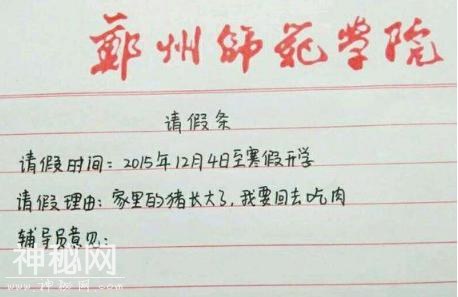 鄭州师范学院
请假条
请假时间：2015年12月4日至寒假开学
请假理由：家里的猪长大了，我要回去吃肉
辅导员意见：
神秘网
www.shenmi.com